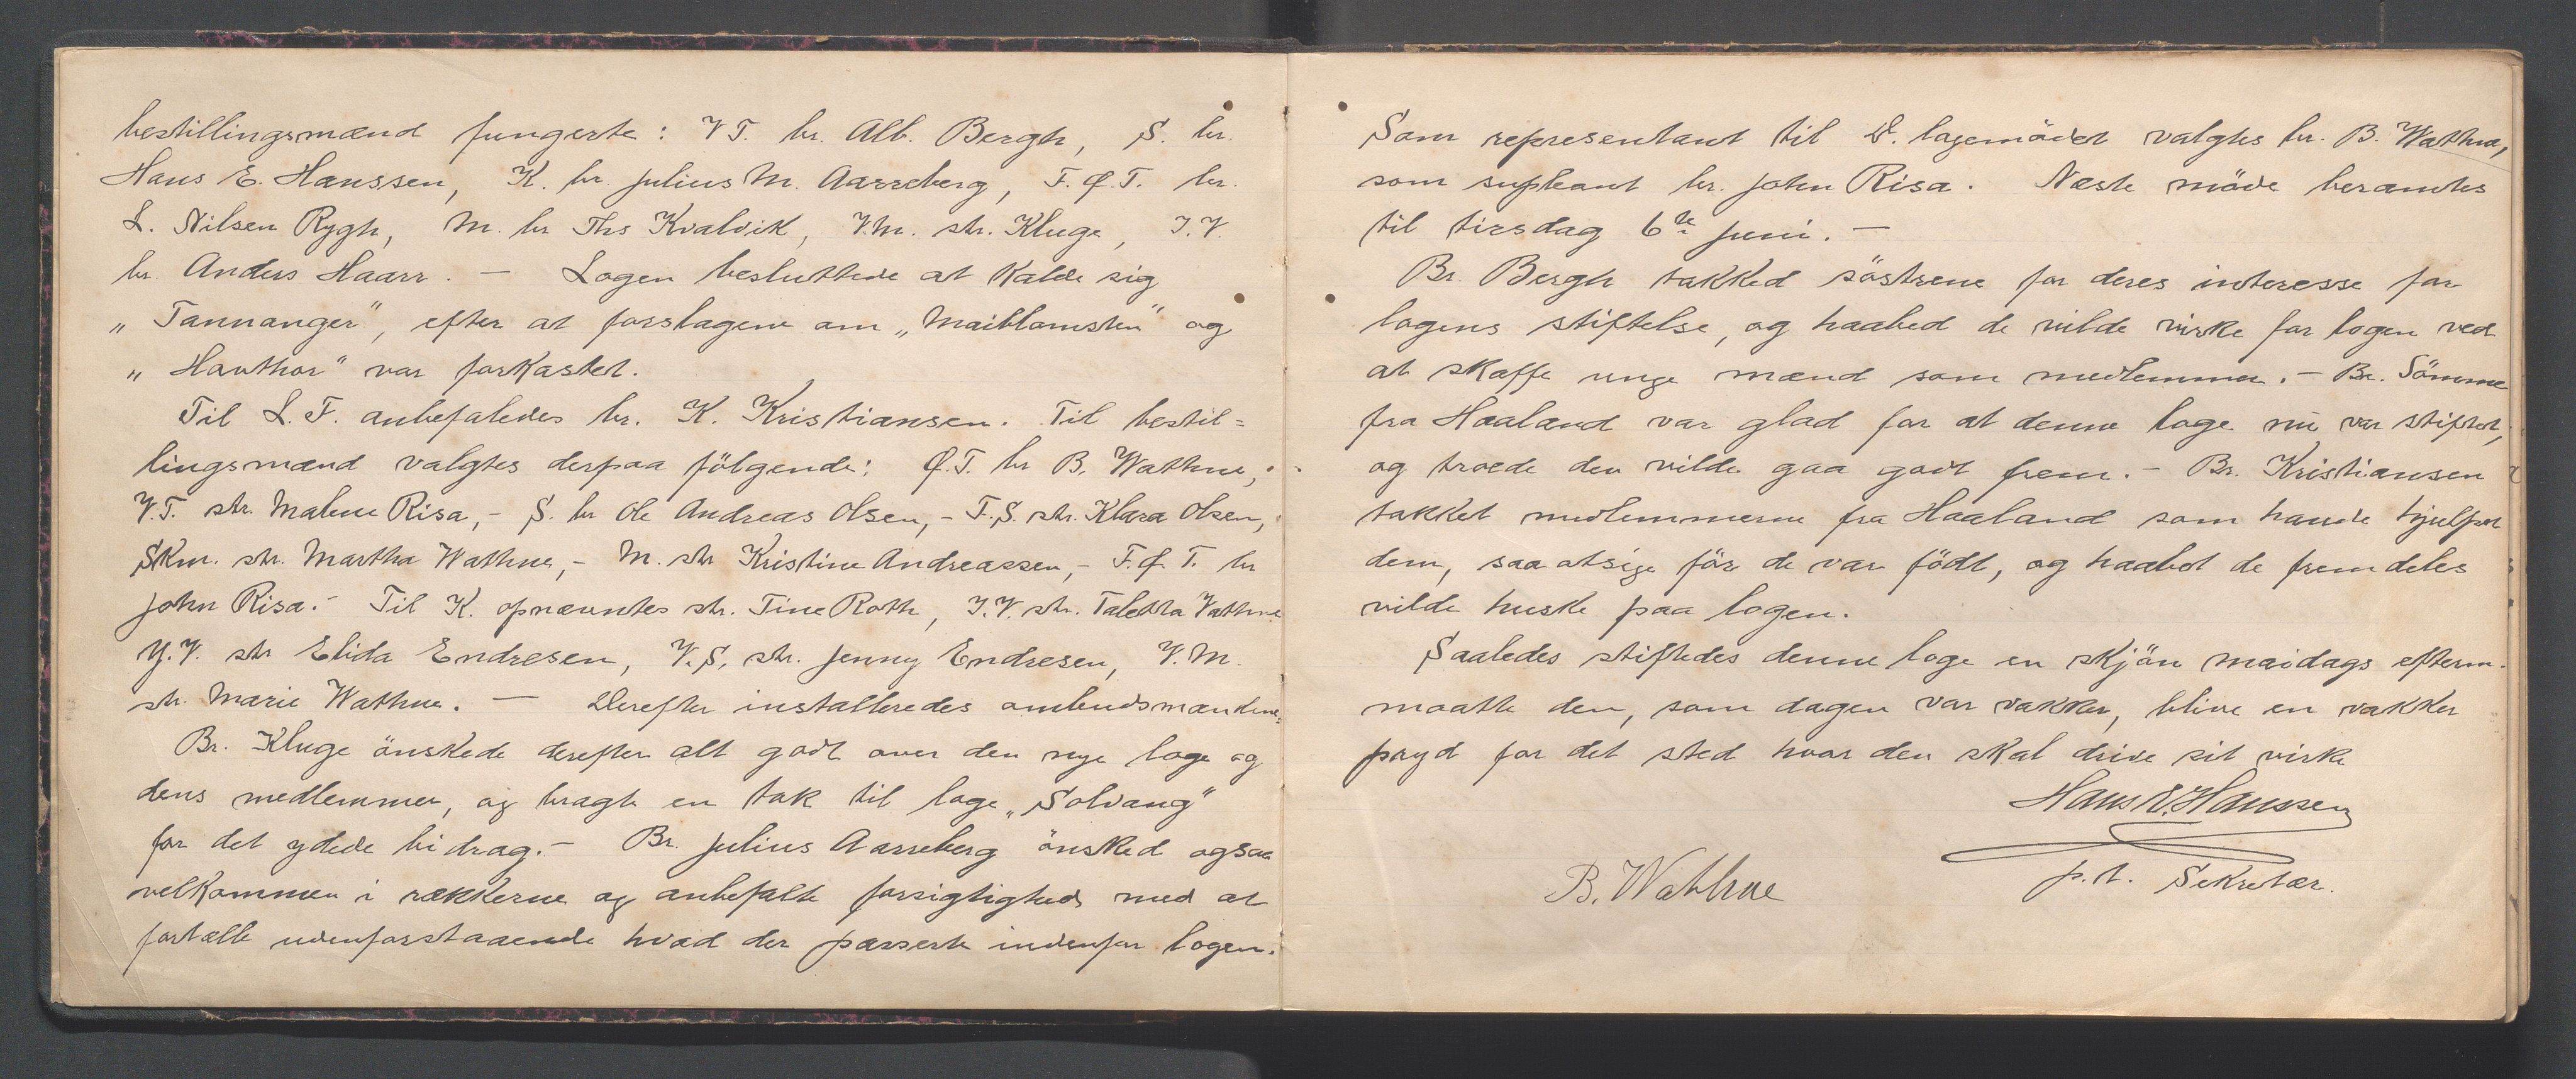 bestillingsmænd fungerte: V.T. br. Alb. Bergh, S. br.
Hans E. Hanssen, K. br. Julius M. Aarreberg, F.Q.T. br.
L. Nilsen Rygh, M. br Ths Kvalvik, V.M. str. Kluge, I.V.
br. Anders Haarr. — Logen besluttede at kalde sig
„Tannanger", efter at forslagene om „Maiblomsten" og
„Havthor" var forkastet.
Til L.T. anbefaledes br. K. Kristiansen. Til bestil=
lingsmænd valgtes derpaa följende: Q.T. br B. Wathne,
V.T. str. Malene Risa, - S. br Ole Andreas Olsen, - F.S. str. Klara Olsen,
Skm. str. Martha Wathne, - M. str Kristine Andreassen, - F.Q.T. br
John Risa. - Til K. opnævntes str. Tine Roth, I.V. str. Taletta Vathne
Y.V. str Elida Endresen, V.S. str. Jenny Endresen, V.M.
str. Marie Wathne. — Derefter installeredes ombudsmændene.
Br. Kluge önskede derefter alt godt over den nye loge og
dens medlemmer, og bragte en tak til loge „Solvang"
for det ydede bidrag. - Br. Julius Aarreberg önsked ogsaa
velkommen i rækkerne og anbefalte forsigtighed med at
fortælle udenforstaaende hvad der passerte indenfor logen.
Som representant til D. logemödet valgtes br. B. Wathne,
som supleant br. John Risa. Næste möde beramtes
til tirsdag 6te juni. —
Br. Bergh takked söstrene for deres interesse for
logens stiftelse, og haabed de vilde virke for logen ved
at skaffe unge mænd som medlemmer. - Br. Sömme
fra Haaland var glad for at denne loge nu var stiftet,
og troede den vilde gaa godt frem. - Br. Kristiansen
takket medlemmerne fra Haaland som havde hjulpet
dem, saa atsige för de var födt, og haabet de fremdeles
vilde huske paa logen.
Saaledes stiftedes denne loge en skjön maidags efterm.
maatte den, som dagen var vakker, blive en vakker
pryd for det sted hvor den skal drive sit virke
Hans E. Hanssen
p.t. Sekretær.
B. Wathne